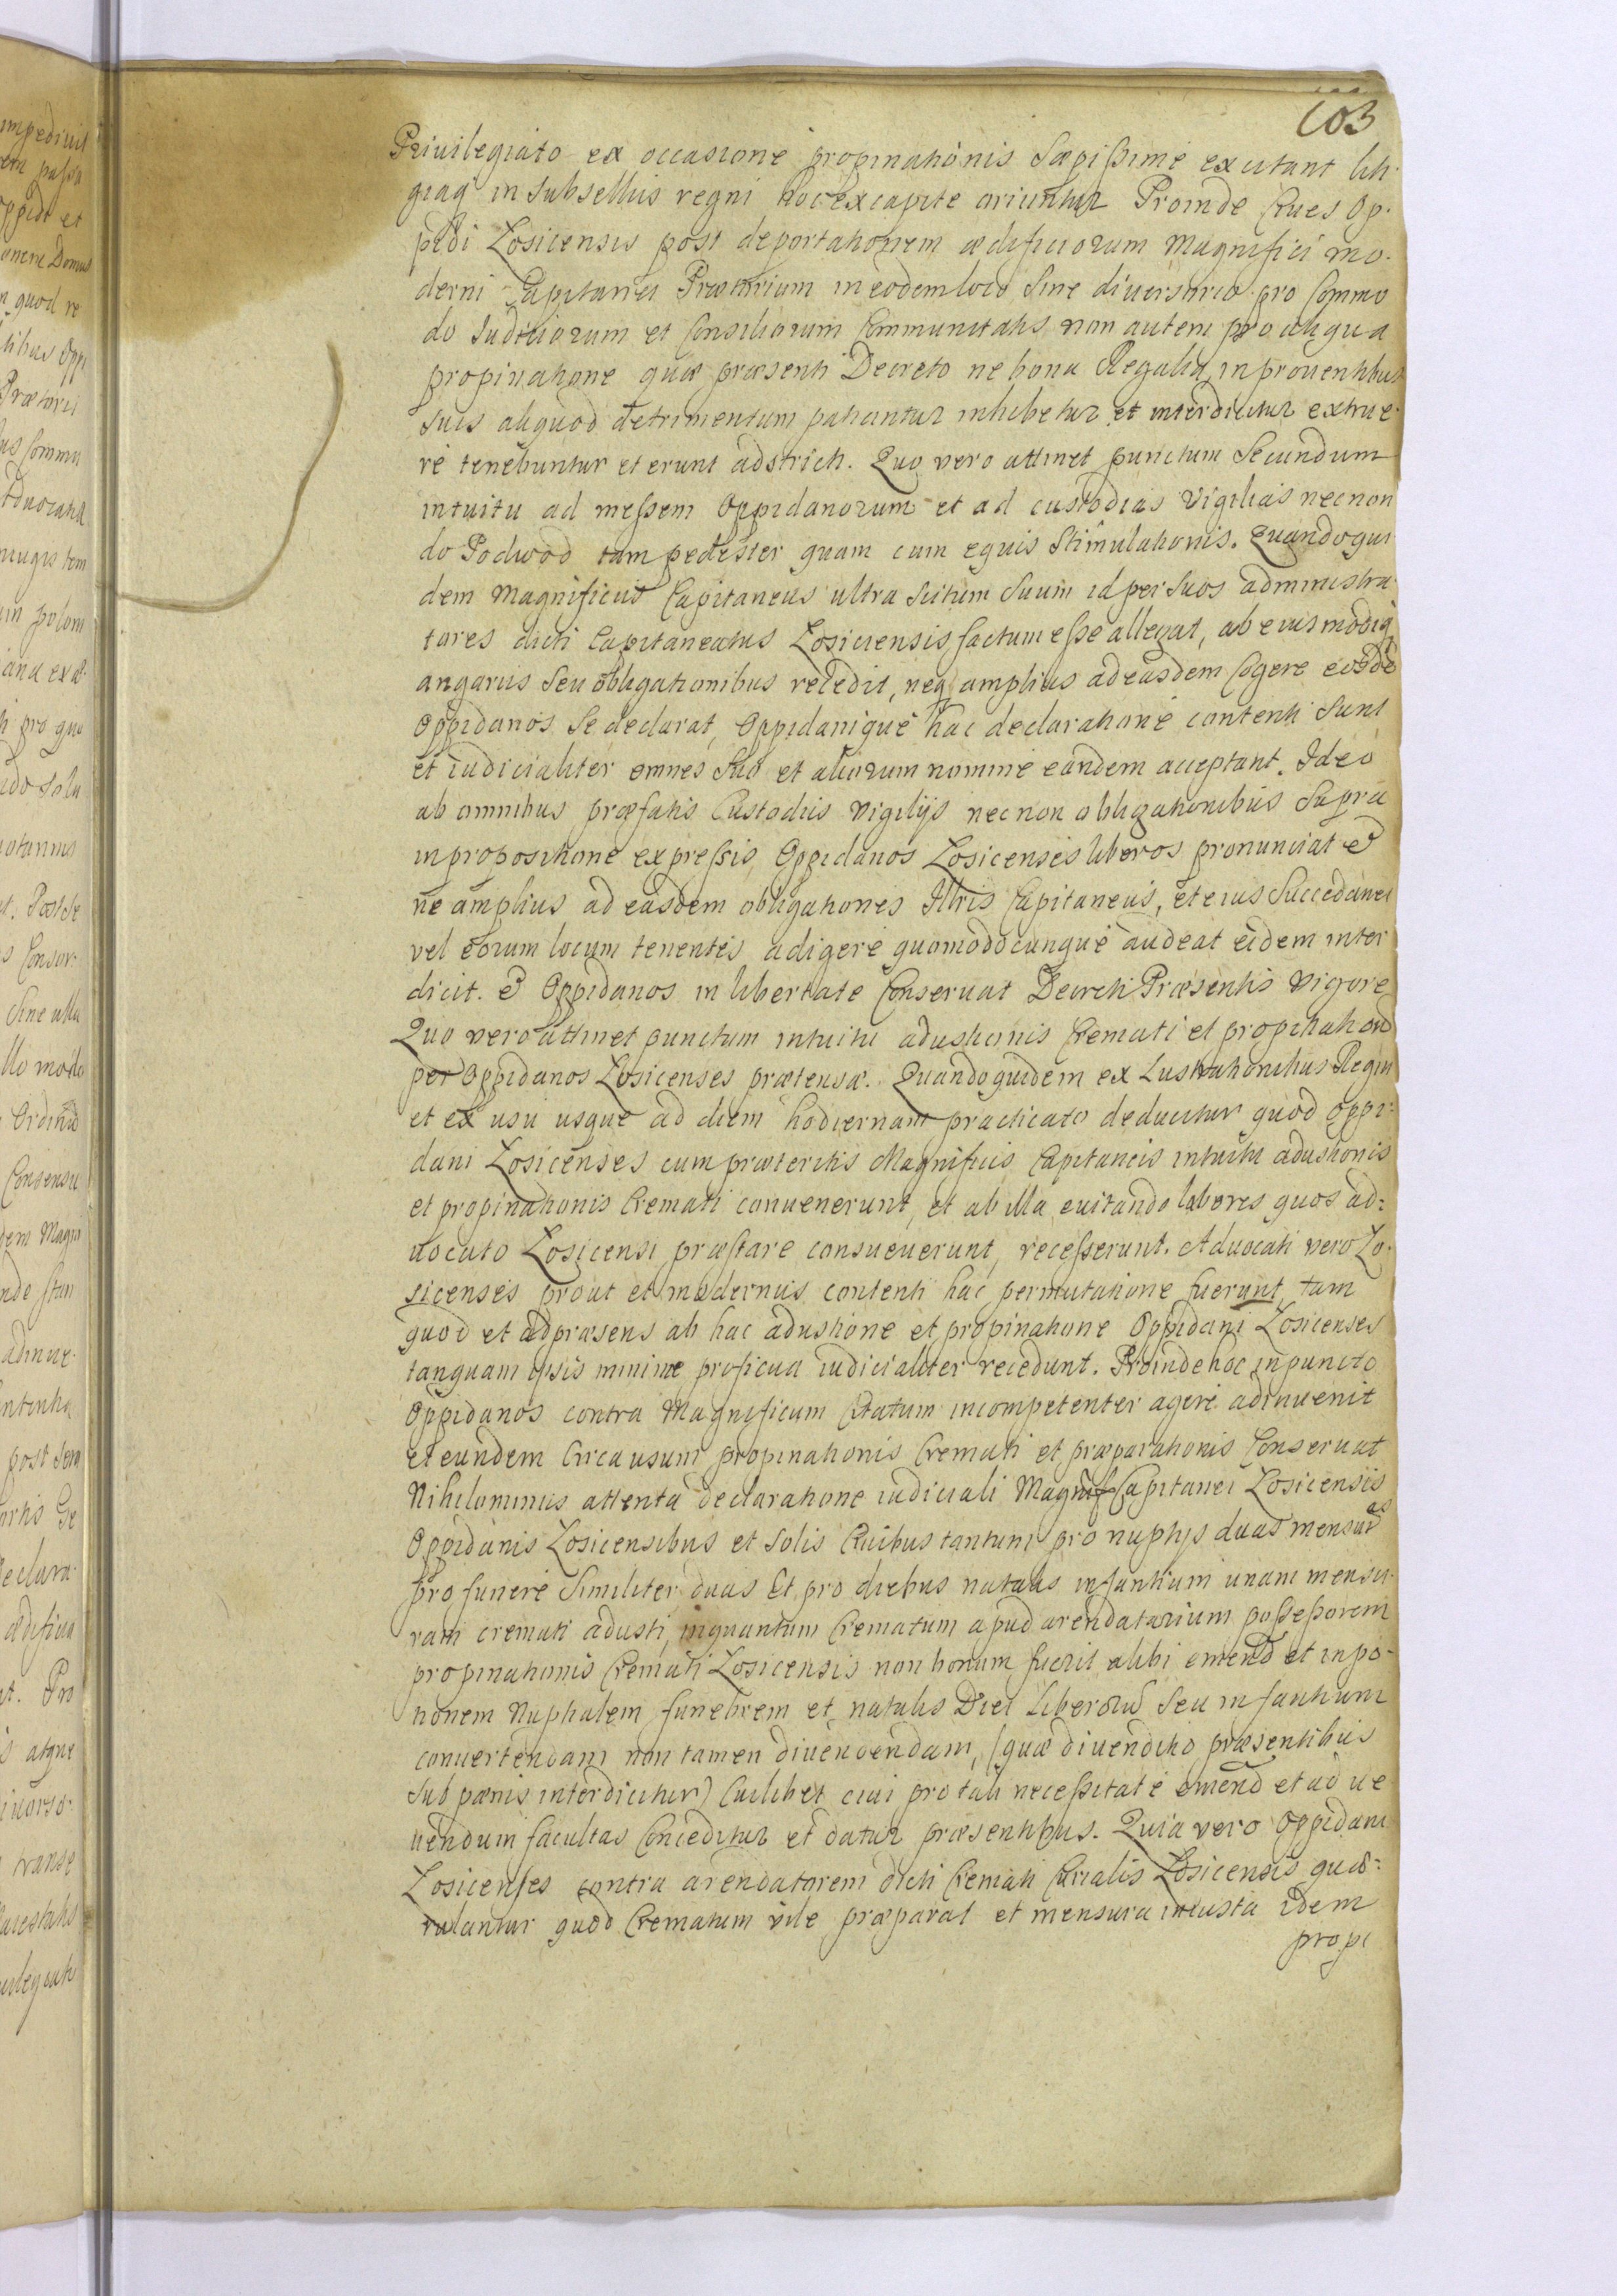 103
Privilegiato ex occasione propinationis Sæpissime excitant liti-
giaq in Subselliis regni hoc ex capite oriuntur Proinde Cives Op-
pidi Łosicensis post deportationem ædificiorum Magnifici mo-
derni Capitanei Prætorium in eodem loco Sine diversorio pro Commo
do Iudiciorum et Consiliorum Communitatis non autem pro aliqua
propinatione quæ præsenti Decreto ne bona Regalia in proventibus
Suis aliquod detrimentum patiantur inhibetur et interdicitur extrue-
re tenebuntur et erunt adstricti. Quo vero attinet punctum Secundum
intuitu ad messem Oppidanorum et ad custodias Vigilias necnon
do Podwod tam pedester quam cum equis Stimulationis. Quandoqui
dem Magnificus Capitaneus ultra Scitum Suum id per Suos administra-
tores dicti Capitaneatus Łosicensis factum esse allegat, ab eiusmodi
angariis Seu obligationibus recedit, neq amplius ad easdem Cogere eosdē
Oppidanos Se declarat, Oppidanique hac declaratione contenti Sunt
et iudicialiter omnes Suo et aliorum nomine eandem acceptant. Ideo
ab omnibus præfatis Custodiis Vigilijs nec non obligationibus Supra
in propositione expressis Oppidanos Łosicenses liberos pronunciat et
ne amplius ad easdem obligationes Illris Capitaneus, et eius Succedanei
vel eorum locum tenentes adigere quomodocunque audeat eidem inter
dicit. et Oppidanos in libertate Conservat Decreti Præsentis Vigore
Quo vero attinet punctum intuitu adustionis Cremati et propination
per Oppidanos Łosicenses prætensæ. Quandoquidem ex Lustrationibus Regni
et ex usu usque ad diem hodiernam practicato deducitur quod Oppi-
dani Łosicenses cum præteritis Magnificis Capitaneis intuitu adustionis
et propinationis Cremati convenerunt, et ab illa evitando labores quos ad-
vocato Łosicensi præstare consueverunt, recesserunt. Advocati vero Ło-
sicenses prout et modernus contenti hac permutatione fuerunt, tam
quod et ad præsens ab hac adustione et propinatione Oppidani Łosicenses
tanquam ipsis minime proficua iudicialiter recedunt. Proinde hoc in puncto
Oppidanos contra Magnificum Citatum incompetenter agere adinvenit
et eundem Circa usum propinationis Cremati et præparationis Conservat
Nihilominus attenta declaratione iudiciali Magnif Capitanei Łosicensis
Oppidanis Łosicensibus et Solis Civibus tantum pro nuptys duas mensuras
pro funere Similiter duas Et pro diebus natalis infantium unam mensu-
ram cremati adusti, inquantum Crematum apud arendatarium possessorem
propinationis Cremati Łosicensis non bonum fuerit alibi emend et in po-
tionem Nuptialem funebrem et natalis Diei liberorū Seu infantium
convertendam non tamen divendendam, (quæ divenditio præsentibus
Sub pænis interdicitur) Cuilibet civi pro tali necessitate emend et ad ve
hendum facultas Conceditur et datur præsentibus. Quia vero Oppidani
Łosicenses contra arendatorem dicti Cremati Curialis Łosicensis quæ-
rulantur quod Crematum vile præparat et mensura iniusta Idem
propi